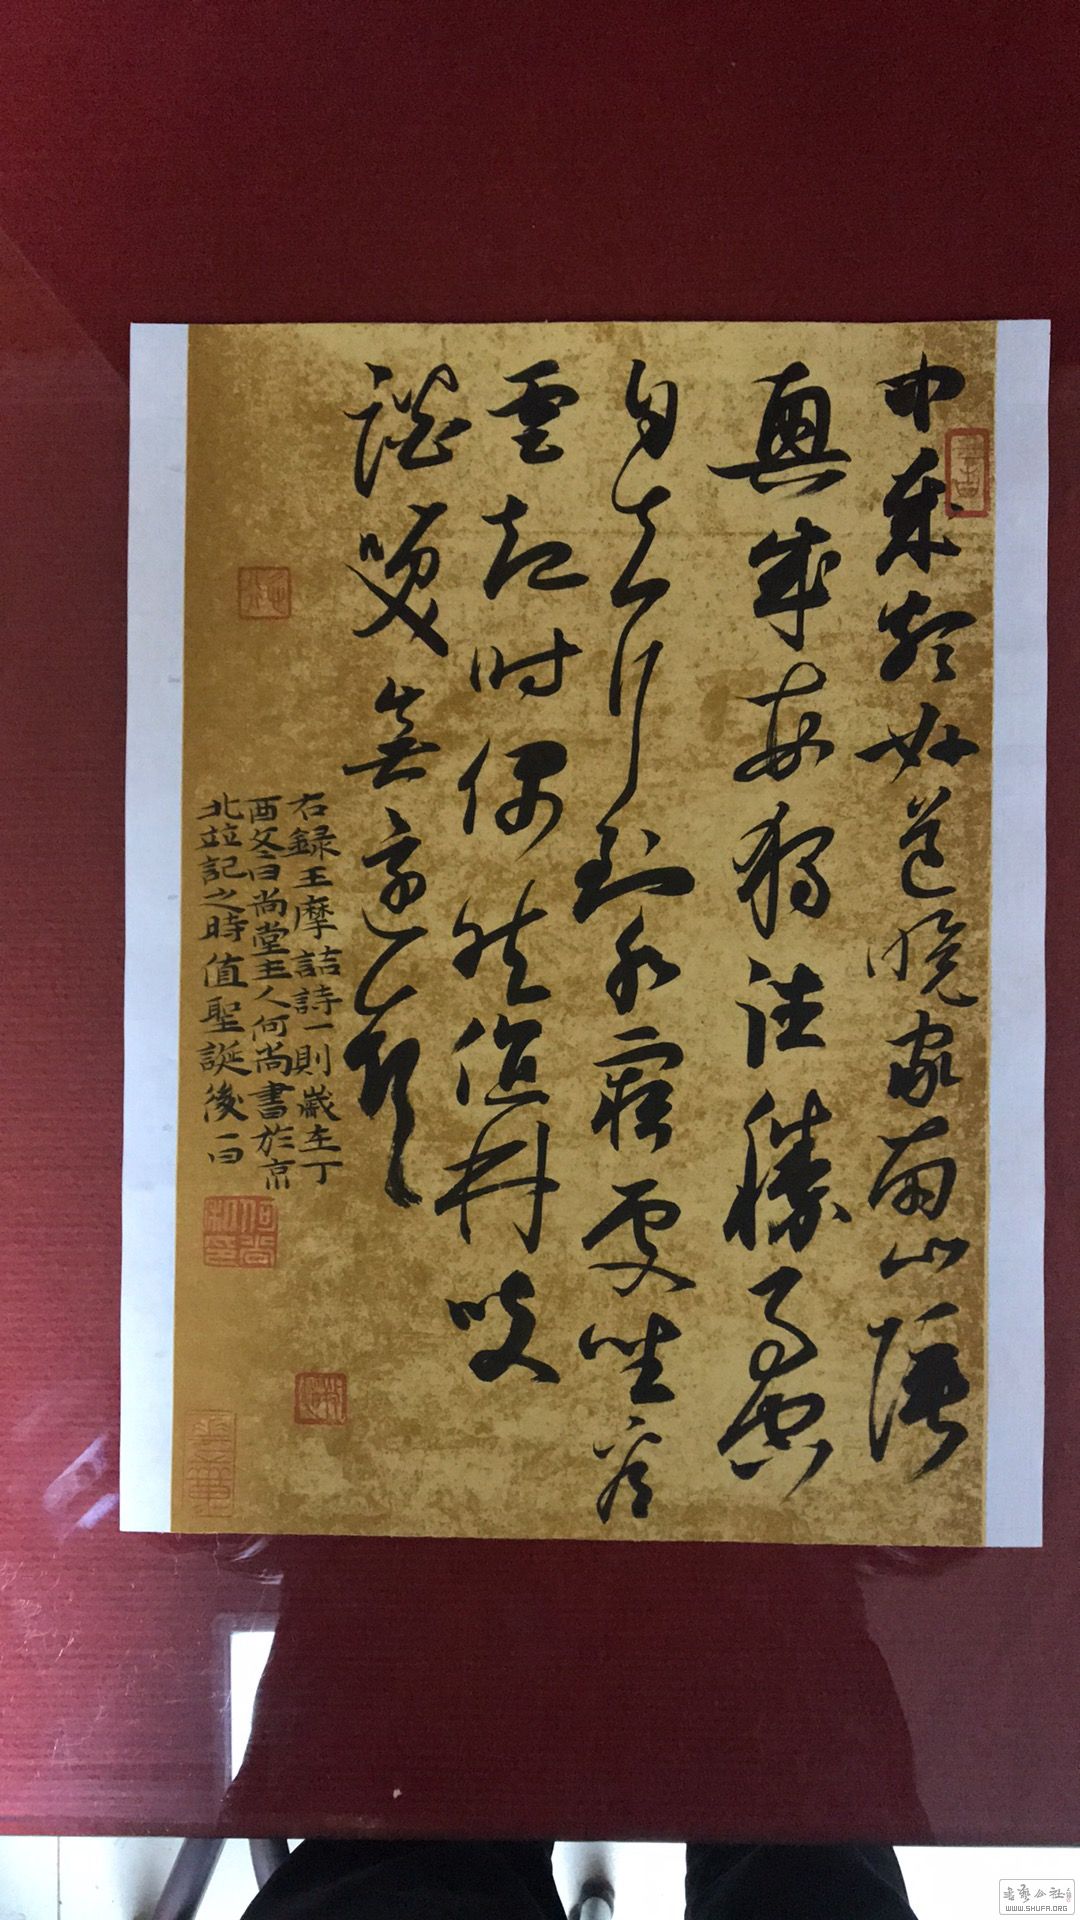 中歲頗好道晚家南山陲
興来每獨往勝事空
自知行到水窮處坐看
雲起時偶然值林叟
談咲無還期
右録王摩詰詩一則歲在丁
酉冬日尚堂主人何尚書於京
北竝記之時值聖誕後一日
書藝公社
WWW.SHUFA.ORG